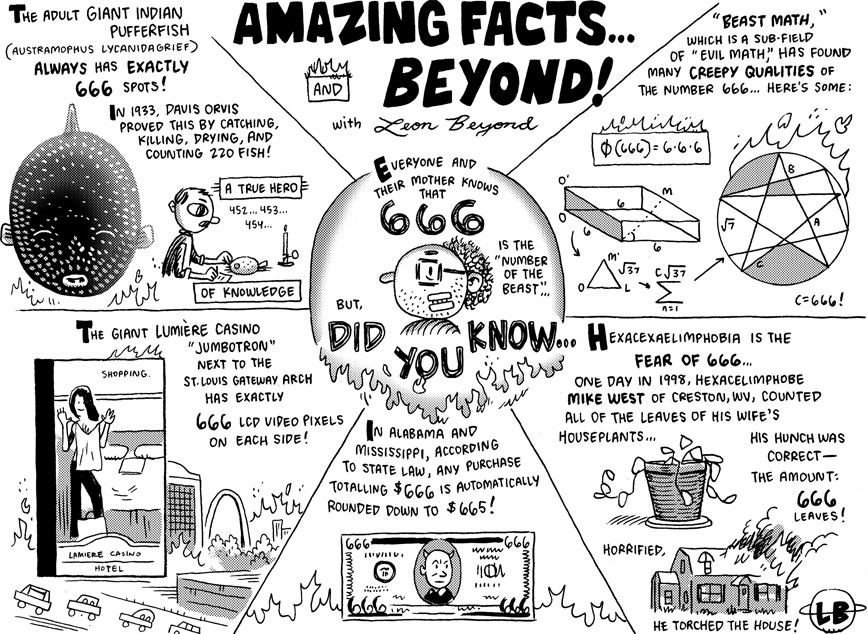 AMAZING FACTS...
AND
BEYOND!
with Leon Beyond
THE ADULT GIANT INDIAN
PUFFERFISH
(AUSTRAMOPHUS LYCANIDAGRIEF)
ALWAYS HAS EXACTLY
666 SPOTS!
IN 1933, DAVIS ORVIS
PROVED THIS BY CATCHING,
KILLING, DRYING, AND
COUNTING 220 FISH!
A TRUE HERO
452... 453...
454...
OF KNOWLEDGE
"BEAST MATH,"
WHICH IS A SUB-FIELD
OF "EVIL MATH," HAS FOUND
MANY CREEPY QUALITIES OF
THE NUMBER 666... HERE'S SOME:
Φ(666)=6·6·6
O'
6
M
O
6
6
M'
√37
O
L
C√37
Σ
n=1
B
√7
A
C
C=666!
EVERYONE AND
THEIR MOTHER KNOWS
THAT
666
IS THE
"NUMBER
OF THE
BEAST"...
BUT,
DID
YOU
KNOW...
THE GIANT LUMIÈRE CASINO
"JUMBOTRON"
NEXT TO THE
ST. LOUIS GATEWAY ARCH
HAS EXACTLY
666 LCD VIDEO PIXELS
ON EACH SIDE!
SHOPPING.
LAMIERE CASINO
HOTEL
IN ALABAMA AND
MISSISSIPPI, ACCORDING
TO STATE LAW, ANY PURCHASE
TOTALLING $666 IS AUTOMATICALLY
ROUNDED DOWN TO $665!
666
666
666
666
HEXACEXAELIMPHOBIA IS THE
FEAR OF 666...
ONE DAY IN 1998, HEXACELIMPHOBE
MIKE WEST OF CRESTON, WV, COUNTED
ALL OF THE LEAVES OF HIS WIFE'S
HOUSEPLANTS...
HIS HUNCH WAS
CORRECT—
THE AMOUNT:
666
LEAVES!
HORRIFIED,
HE TORCHED THE HOUSE!
LB